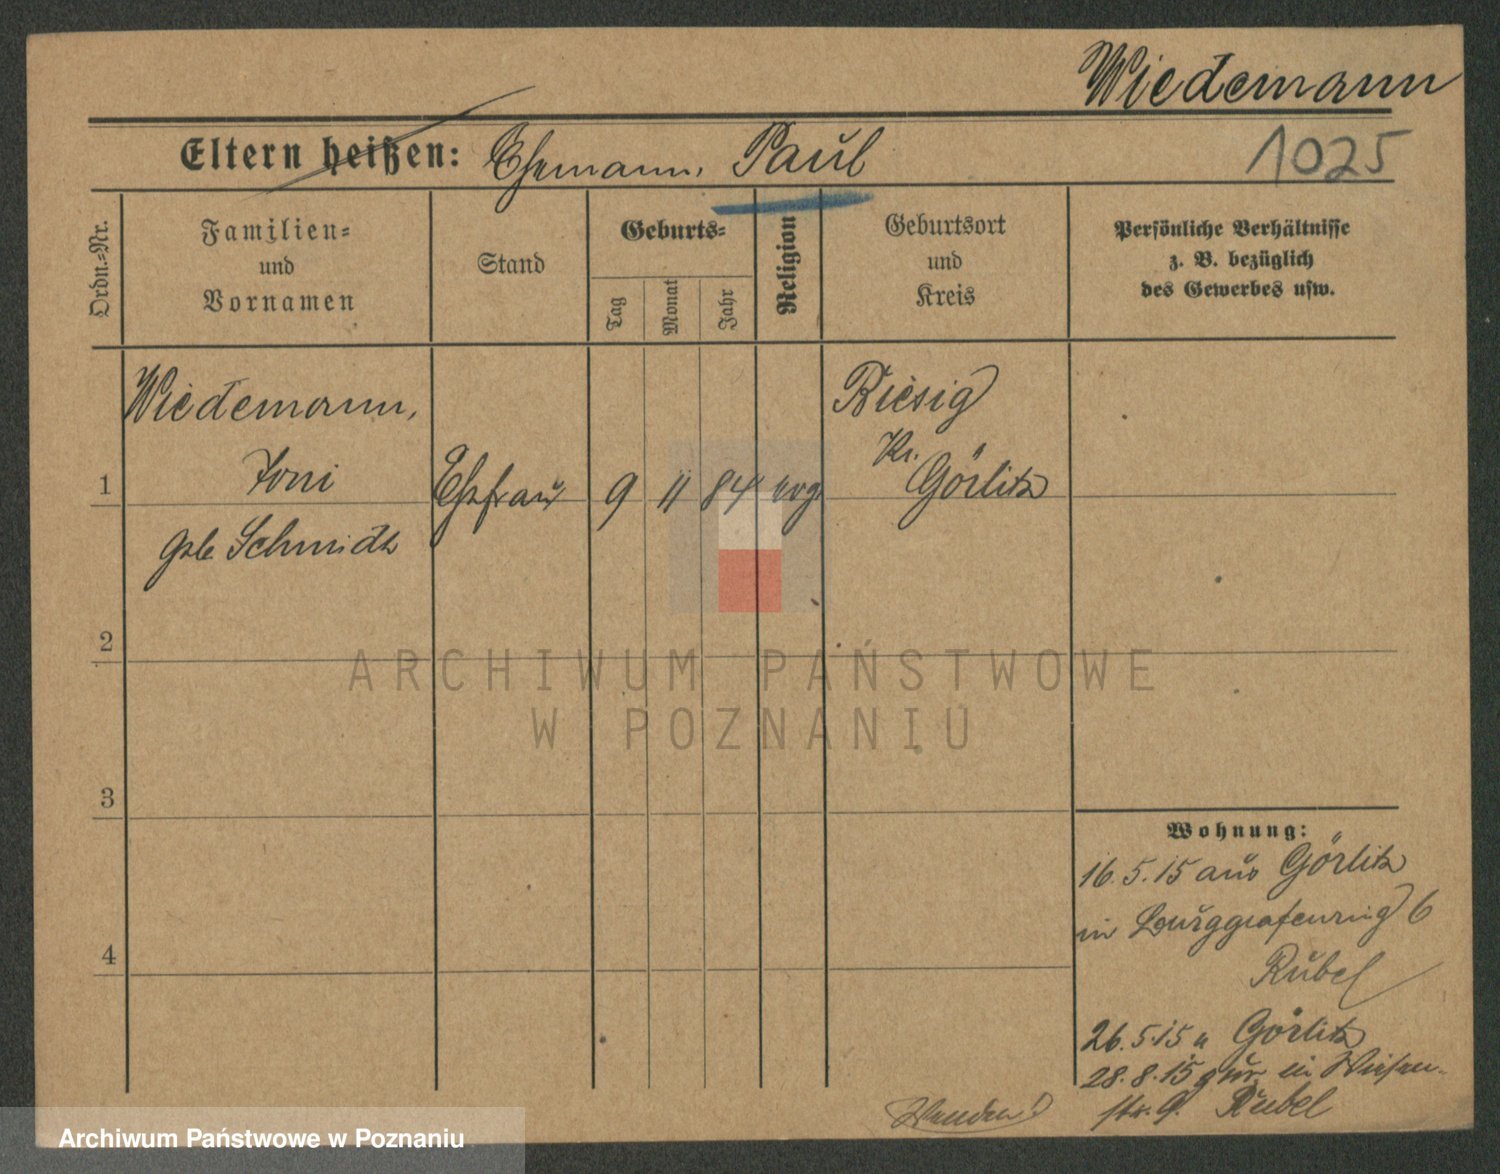 Wiedemann
1025
Eltern heißen: Ehemann, Paul
Ordn.-Nr.
Familien-
und
Vornamen
Stand
Geburts-
Tag
Monat
Jahr
Religion
Geburtsort
und
Kreis
Persönliche Verhältnisse
z. B. bezüglich
des Gewerbes usw.
Wiedemann,
Toni
geb. Schmidt
1
Ehefrau
9
11
84
evg
Biesig
Kr.
Görlitz
2
ARCHIWUM PAŃSTWOWE
W POZNANIU
3
4
Wohnung:
16.5.15 aus Görlitz
in Burggrafenring 6
Rübel
26.5.15 n Görlitz
28.8.15 zur. in Wiesen-
str. 9. Rübel
Wenden!
Archiwum Państwowe w Poznaniu